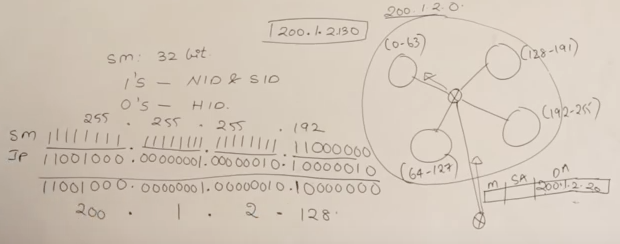 200.1.2.0.
200.1.2.130
SM: 32 bit
1'S - NID & SID
0'S - HID.
255 . 255 . 255 . 192
SM 11111111 . 11111111 . 11111111 . 11000000
IP 11001000 . 00000001 . 00000010 . 10000010
11001000 . 0000001 . 00000010 . 10000000
200 . 1 . 2 . 128.
(0-63)
(128-191)
(192-255)
(64-127)
M SA DA
200.1.2.20